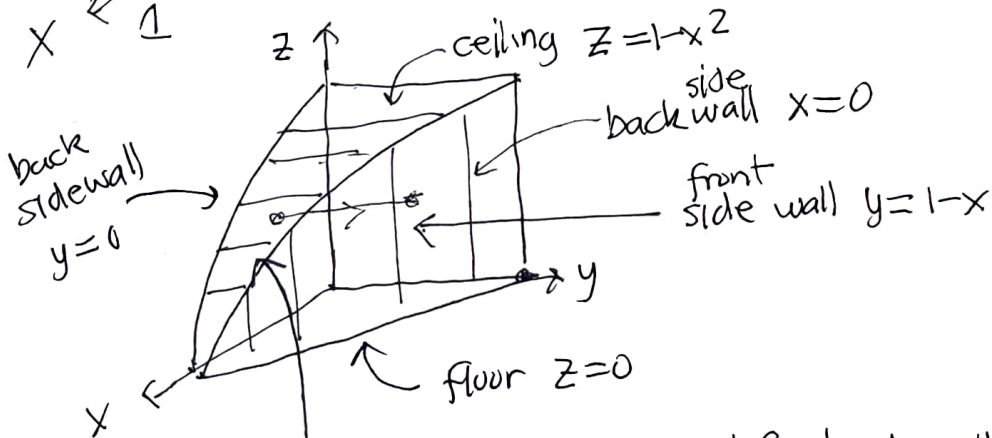 X 1
z
ceiling z=1-x²
side
back wall x=0
back
sidewall
y=0
front
side wall y=1-x
y
floor z=0
X